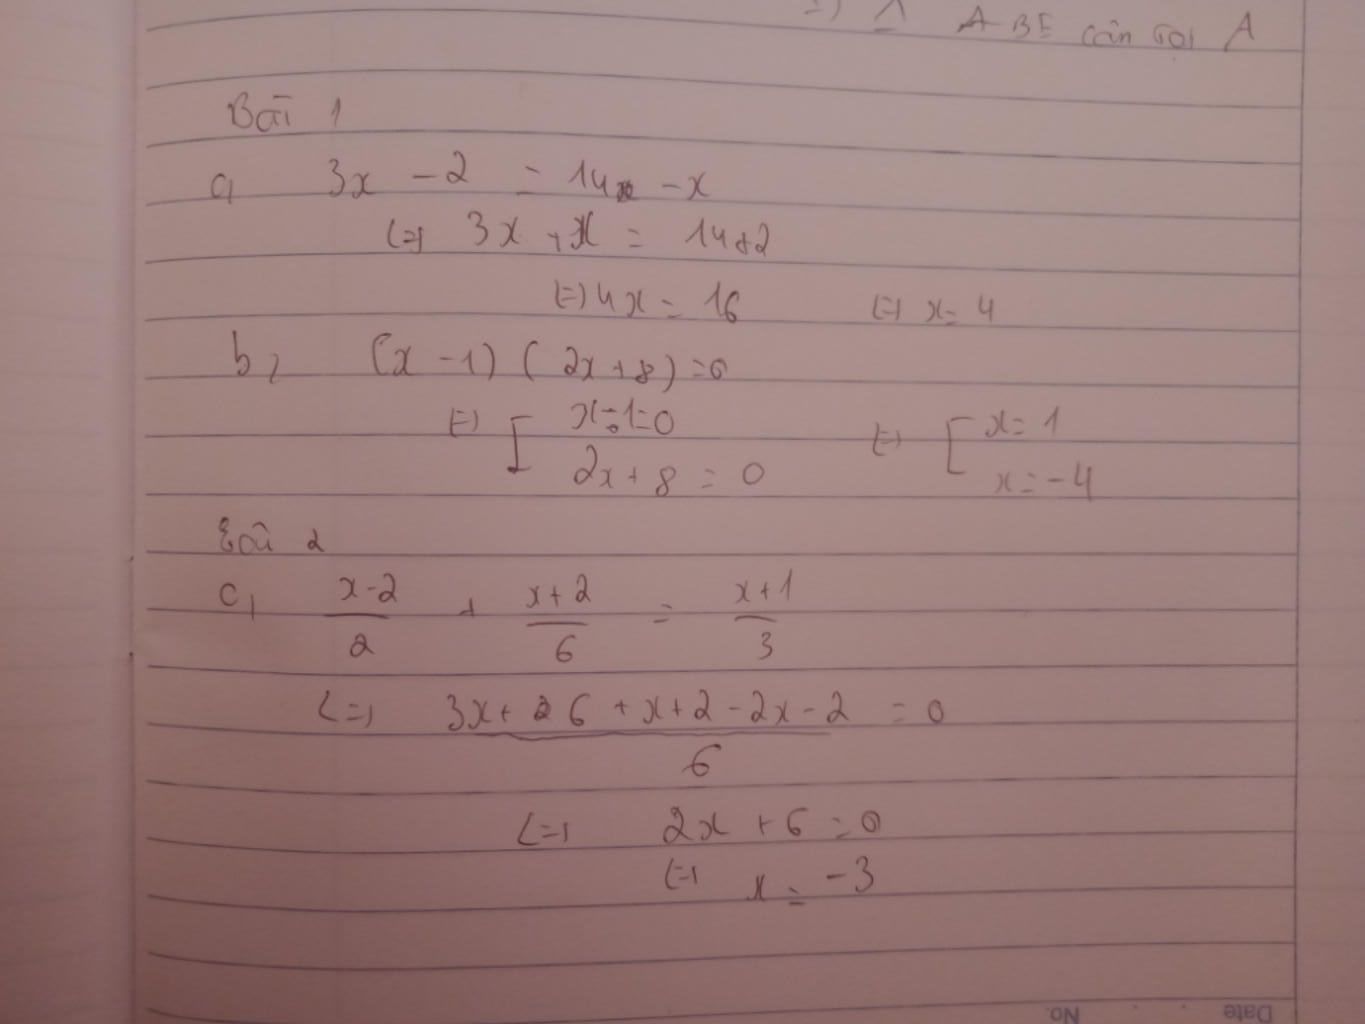 =) Δ ABE cân tại A
Bài 1
a, 3x - 2 = 14 - x
<=> 3x + x = 14 + 2
<=> 4x = 16 <=> x = 4
b, (x - 1) ( 2x + 8 ) = 0
<=> [ x - 1 = 0
2x + 8 = 0
<=> [ x = 1
x = -4
Bài 2
c, x-2/2 + x+2/6 = x+1/3
<=> 3x + 6 + x + 2 - 2x - 2 / 6 = 0
<=> 2x + 6 = 0
<=> x = -3
No. Date